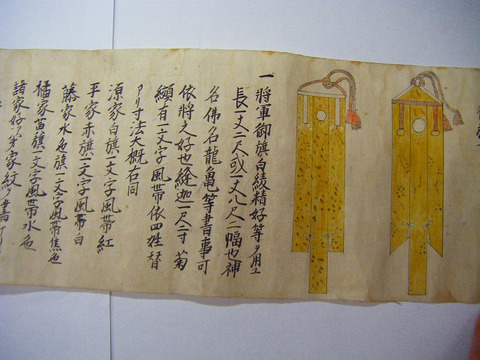 一將軍御旗白綾精好等ヲ用
長一丈二尺或一丈八尺二幅也神
名佛名龍亀等書事可
依將之好也縫迦一尺二寸菊
纐有二文字風帯依四姓替
アリ寸法大概右同
源家白旗一文字風帯紅
平家赤旗一文字風帯白
藤家水色旗一文字風帯焦色
橘家黄旗一文字風帯水色
諸家好
家紋